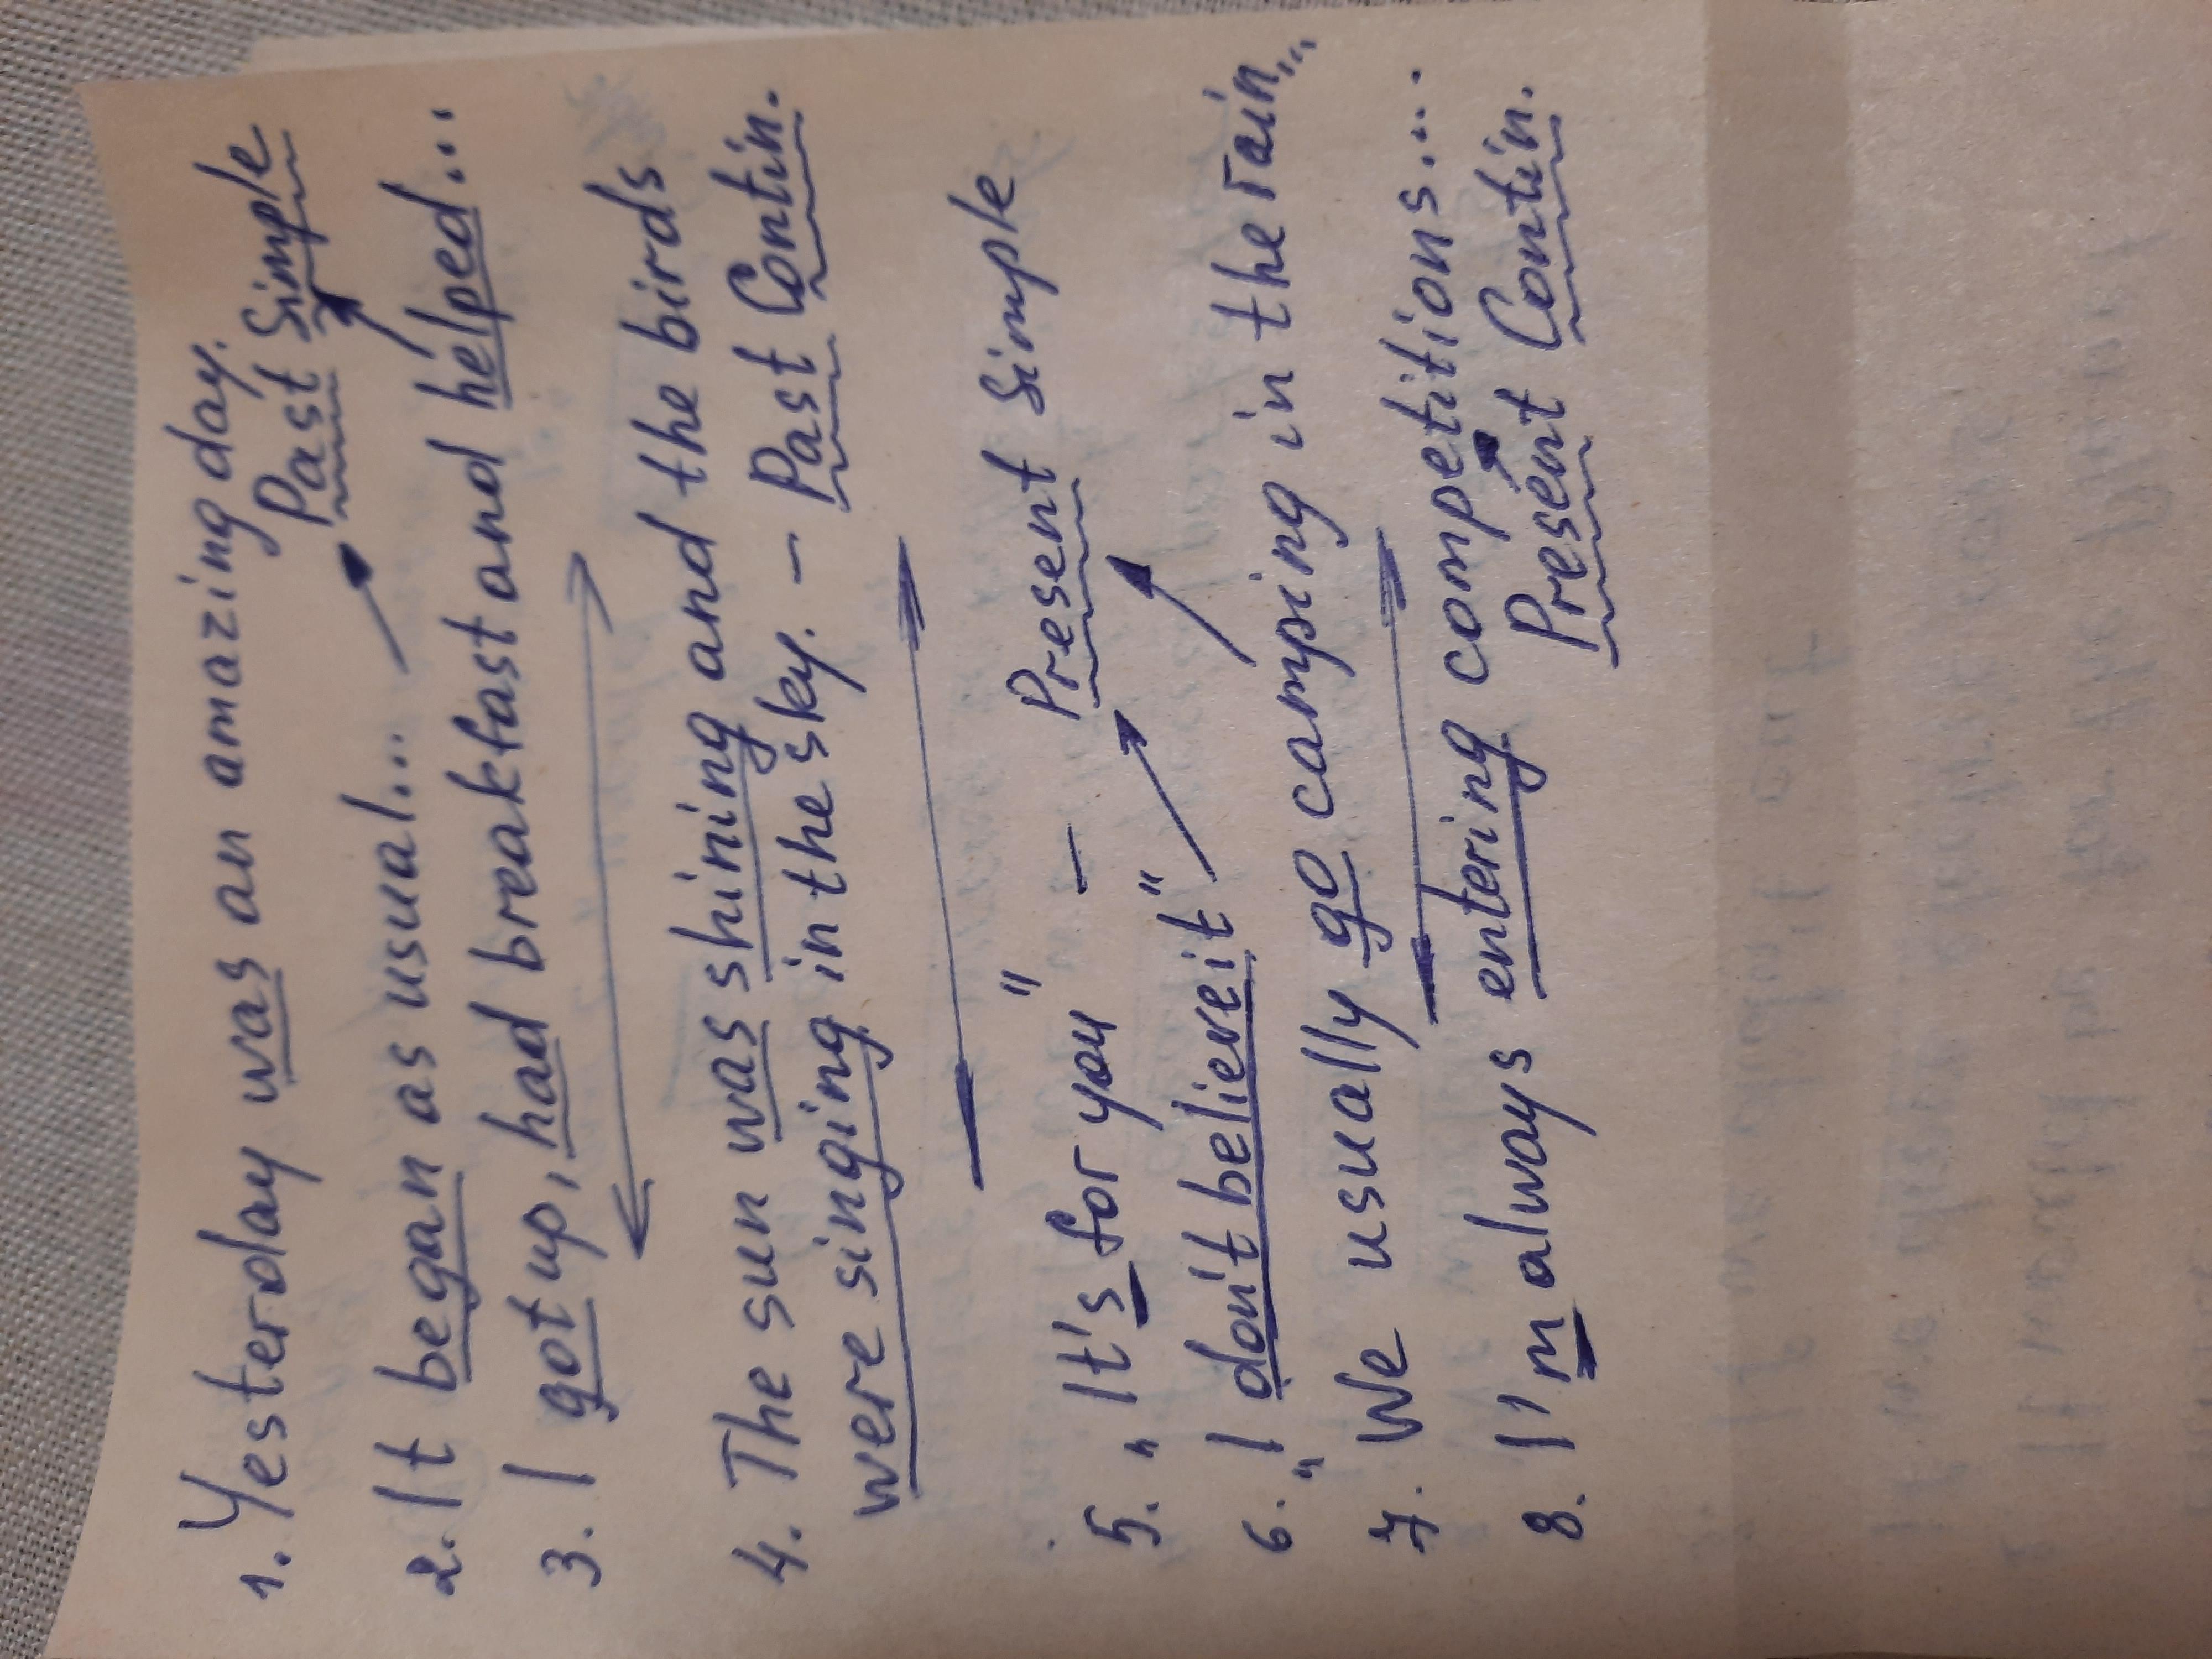 1. Yesterday was an amazing day.
Past Simple
2. It began as usual...
3. I got up, had breakfast and helped...
4. The sun was shining and the birds
were singing in the sky. - Past Contin.
5. "It's for you" - Present Simple
6. "I don't believe it"
7. We usually go camping in the rain...
8. I'm always entering competitions...
Present Contin.